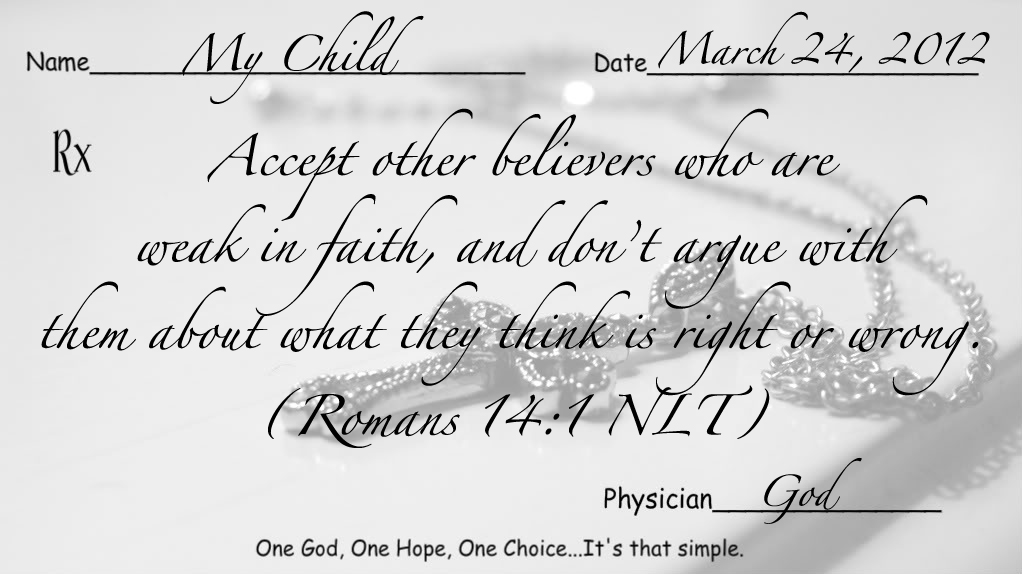 Name My Child Date March 24, 2012
Rx Accept other believers who are
weak in faith, and don't argue with
them about what they think is right or wrong.
(Romans 14:1 NLT)
Physician God
One God, One Hope, One Choice...It's that simple.